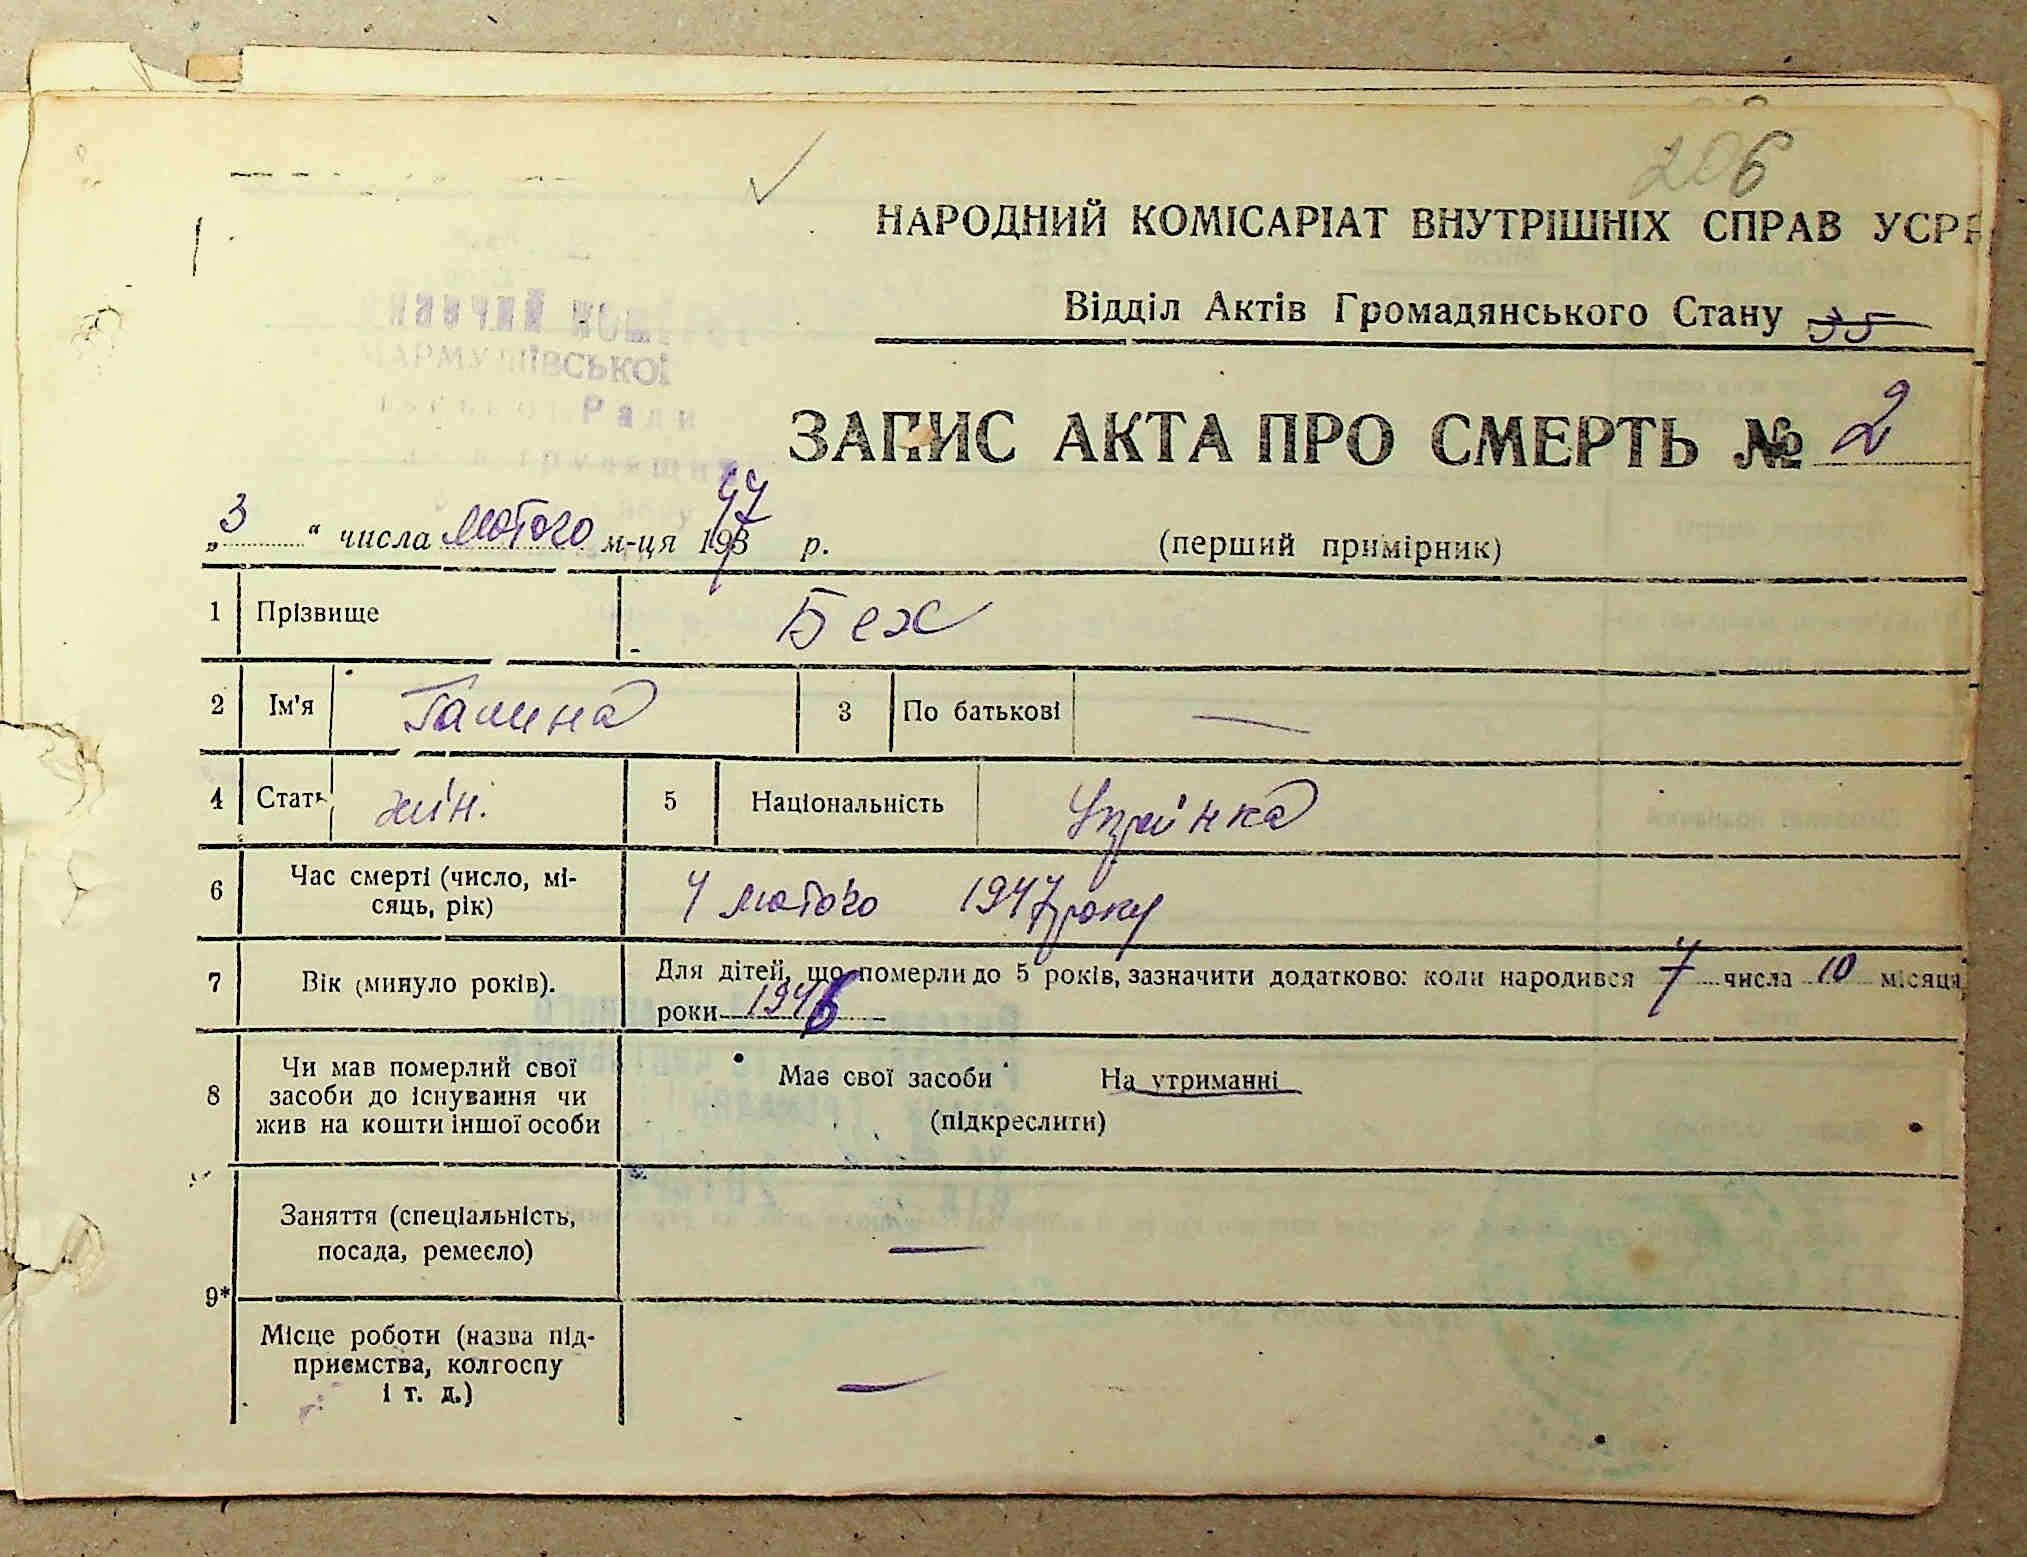 206
НАРОДНИЙ КОМІСАРІАТ ВНУТРІШНІХ СПРАВ УСРР
Відділ Актів Громадянського Стану 35
ЗАПИС АКТА ПРО СМЕРТЬ № 2
„3“ числа лютого м-ця 1947 р. (перший примірник)
1 Прізвище Беж
2 Ім'я Галина 3 По батькові —
4 Стать жін. 5 Національність Українка
6 Час смерті (число, мі-
сяць, рік) 4 лютого 1947 року
7 Вік (минуло років). Для дітей, що померли до 5 років, зазначити додатково: коли народився 7 числа 10 місяця
роки 1946
8 Чи мав померлий свої
засоби до існування чи
жив на кошти іншої особи
Має свої засоби На утриманні
(підкреслити)
9*
Заняття (спеціальність,
посада, ремесло) —
Місце роботи (назва під-
приємства, колгоспу
і т. д.) —